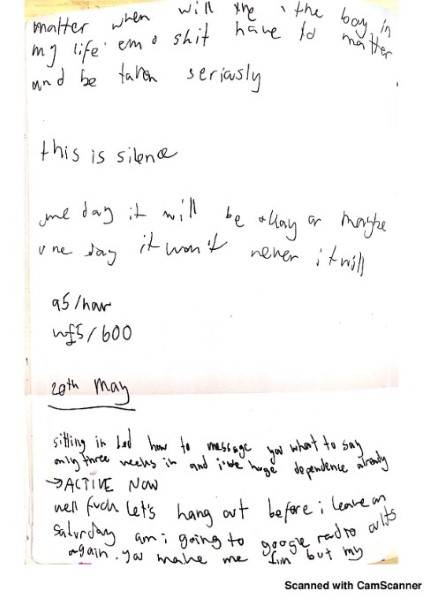 matter when will the the boy in
my life emo shit have to matter
and be taken seriously
this is silence
one day it will be okay or maybe
one day it won't never it will
95/hour
wfs/600
20th May
sitting in bed how to message you what to say
only three weeks in and i've huge dependence already
→ACTIVE NOW
well fuck let's hang out before i leave on
saturday am i going to google radio
again. you make me fun but my
Scanned with CamScanner